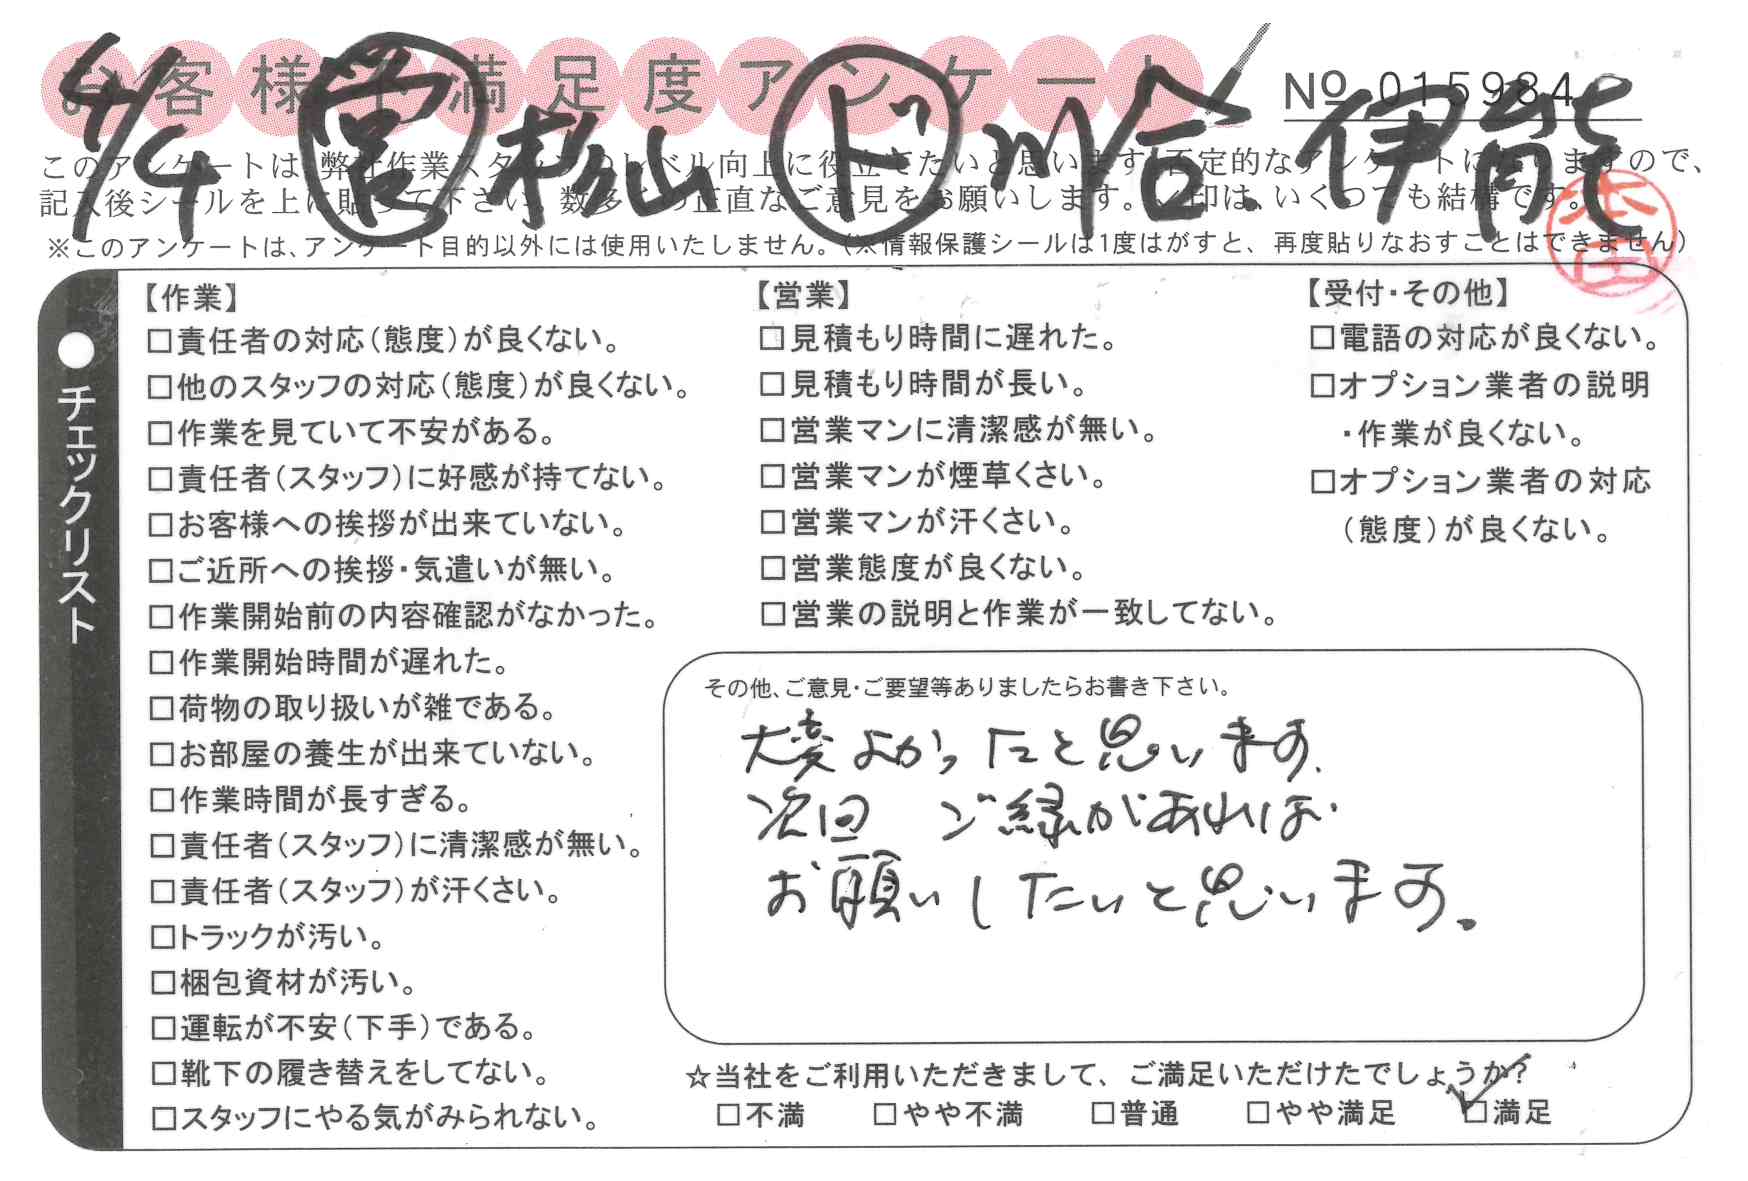 お客様不満足度アンケート
No 015984
4/4 営 杉山 ド 川合 伊能
このアンケートは、弊社作業スタッフのレベル向上に役立てたいと思います。否定的なアンケートになりますので、
記入後シールを上に貼って下さい。数多くの正直なご意見をお願いします。✓印は、いくつでも結構です。
※このアンケートは、アンケート目的以外には使用いたしません。(※情報保護シールは1度はがすと、再度貼りなおすことはできません)
●チェックリスト
【作業】
□責任者の対応(態度)が良くない。
□他のスタッフの対応(態度)が良くない。
□作業を見ていて不安がある。
□責任者(スタッフ)に好感が持てない。
□お客様への挨拶が出来ていない。
□ご近所への挨拶・気遣いが無い。
□作業開始前の内容確認がなかった。
□作業開始時間が遅れた。
□荷物の取り扱いが雑である。
□お部屋の養生が出来ていない。
□作業時間が長すぎる。
□責任者(スタッフ)に清潔感が無い。
□責任者(スタッフ)が汗くさい。
□トラックが汚い。
□梱包資材が汚い。
□運転が不安(下手)である。
□靴下の履き替えをしてない。
□スタッフにやる気がみられない。
【営業】
□見積もり時間に遅れた。
□見積もり時間が長い。
□営業マンに清潔感が無い。
□営業マンが煙草くさい。
□営業マンが汗くさい。
□営業態度が良くない。
□営業の説明と作業が一致してない。
【受付・その他】
□電語の対応が良くない。
□オプション業者の説明
・作業が良くない。
□オプション業者の対応
(態度)が良くない。
その他、ご意見・ご要望等ありましたらお書き下さい。
大変よかったと思います、
次回 ご縁があれば
お願いしたいと思います。
☆当社をご利用いただきまして、ご満足いただけたでしょうか?
□不満 □やや不満 □普通 □やや満足 ☑満足